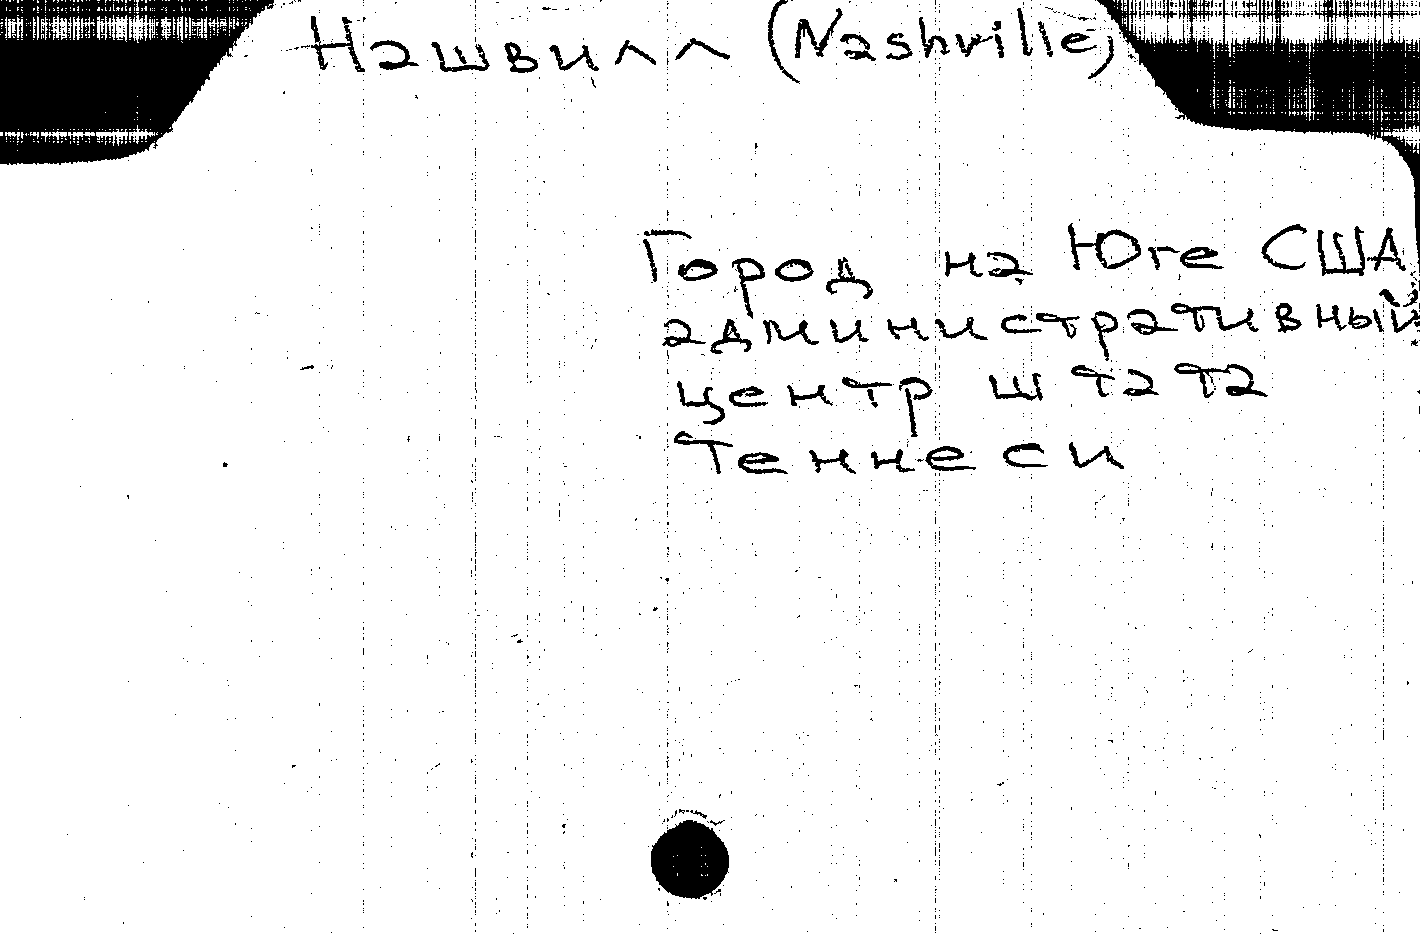 Нашвилл (Nashville)
Город на Юге США
административный
центр штата
Теннеси